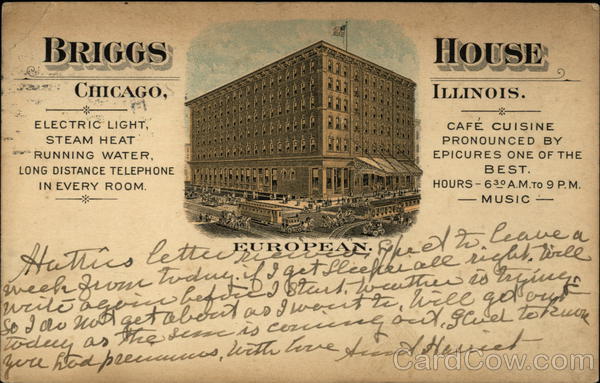 BRIGGS HOUSE
CHICAGO, ILLINOIS.
ELECTRIC LIGHT,
STEAM HEAT
RUNNING WATER,
LONG DISTANCE TELEPHONE
IN EVERY ROOM.
CAFÉ CUISINE
PRONOUNCED BY
EPICURES ONE OF THE
BEST.
HOURS - 6 30 A.M. TO 9 P.M.
MUSIC
EUROPEAN.
Hattie's letter received. Expect to leave a
week from today, if I get sleeper all right. Will
write again before I start. Weather is trying.
So I do not get about as I want to. Will get out
today as the sun is coming out. Glad to know
you had, With love Aunt Harriet
CardCow.com